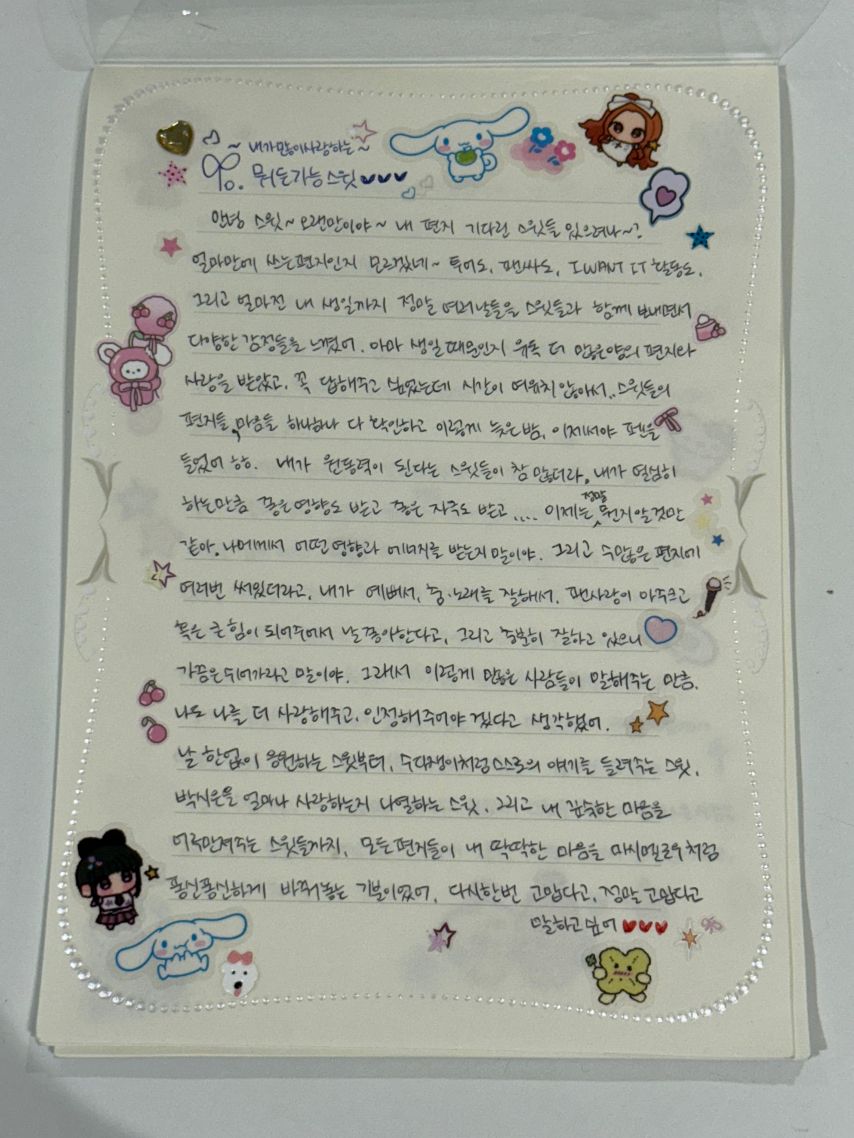 ~ 내가많이사랑하는~
To. 뭐든가능스윗♥♥♥
안녕 스윗~ 오랜만이야~ 내 편지 기다린 스윗들 있으려나~?
얼마만에 쓰는편지인지 모르겠네~ 투어도, 팬싸도, I WANT IT 활동도,
그리고 얼마전 내 생일까지 정말 여러날들을 스윗들과 함께 보내면서
다양한 감정들을 느꼈어. 아마 생일 때문인지 유독 더 많은양의 편지와
사랑을 받았고, 꼭 답해주고 싶었는데 시간이 여유치 않아서.. 스윗들의
편지들, 마음들 하나하나 다 확인하고 이렇게 늦은밤, 이제서야 펜을
들었어 하하. 내가 원동력이 된다는 스윗들이 참 많더라, 내가 열심히
하는만큼 좋은영향도 받고 좋은 자극도 받고.... 이제는 정말 뭔지알것만
같아, 나에게서 어떤 영향과 에너지를 받는지 말이야. 그리고 수많은 편지에
여러번 써있더라고, 내가 예뻐서, 춤·노래를 잘해서, 팬사랑이 아주크고
혹은 큰 힘이 되어주어서 날 좋아한다고, 그리고 충분히 잘하고 있으니
가끔은 쉬어가라고 말이야. 그래서 이렇게 많은 사람들이 말해주는 만큼.
나도 나를 더 사랑해주고, 인정해주어야 겠다고 생각했어.
날 한없이 응원하는 스윗부터, 수다쟁이처럼 스스로의 얘기를 들려주는 스윗,
박시은을 얼마나 사랑하는지 나열하는 스윗, 그리고 내 깊숙한 마음을
어루만져주는 스윗들까지, 모든편지들이 내 딱딱한 마음을 마시멜로우처럼
퐁신퐁신하게 바꿔놓는 기분이였어, 다시한번 고맙다고, 정말 고맙다고
말하고 싶어♥♥♥